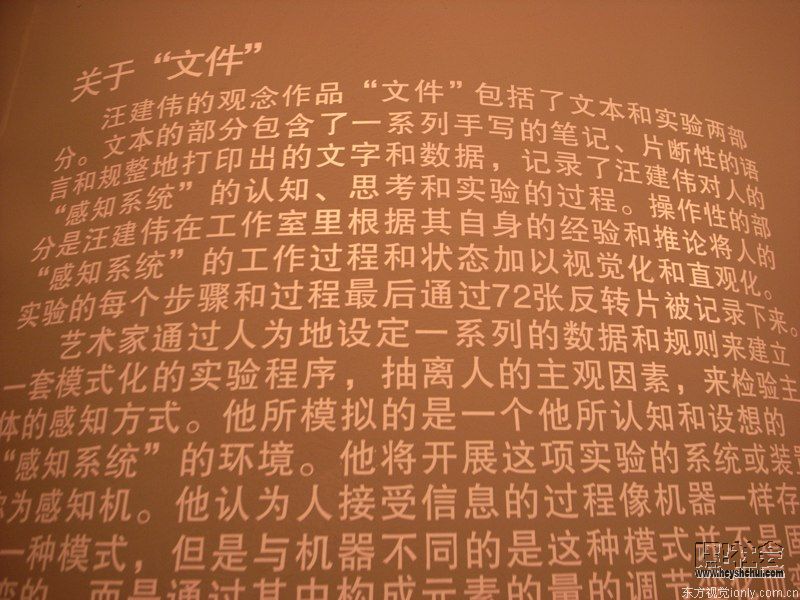 关于“文件”
汪建伟的观念作品“文件”包括了文本和实验两部
分。文本的部分包含了一系列手写的笔记、片断性的语
言和规整地打印出的文字和数据，记录了汪建伟对人的
“感知系统”的认知、思考和实验的过程。操作性的部
分是汪建伟在工作室里根据其自身的经验和推论将人的
“感知系统”的工作过程和状态加以视觉化和直观化。
实验的每个步骤和过程最后通过72张反转片被记录下来。
艺术家通过人为地设定一系列的数据和规则来建立
一套模式化的实验程序，抽离人的主观因素，来检验主
体的感知方式。他所模拟的是一个他所认知和设想的
“感知系统”的环境。他将开展这项实验的系统或装置
为感知机。他认为人接受信息的过程像机器一样存
一种模式，但是与机器不同的是这种模式并不是固
而是通过其中构成元素的量的调节
www.heyshehui.com
东方视觉ionly.com.cn